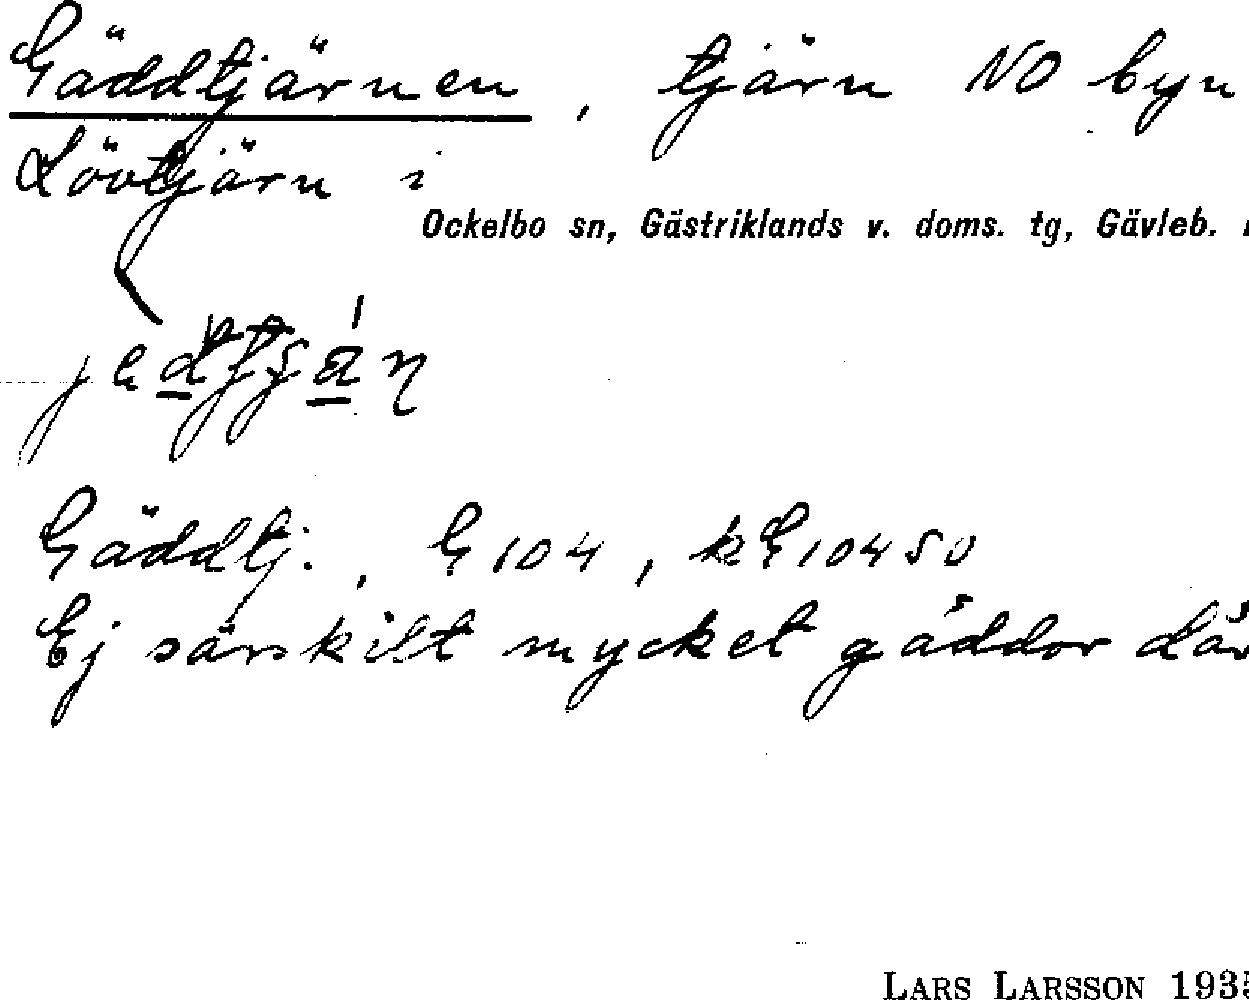 Gäddtjärnen, tjärn NO byn
Lövtjärn i
Ockelbo sn, Gästriklands v. doms. tg, Gävleb.
Gäddtj., G 104, kG 10450
Ej särskilt mycket gäddor där
LARS LARSSON 1935